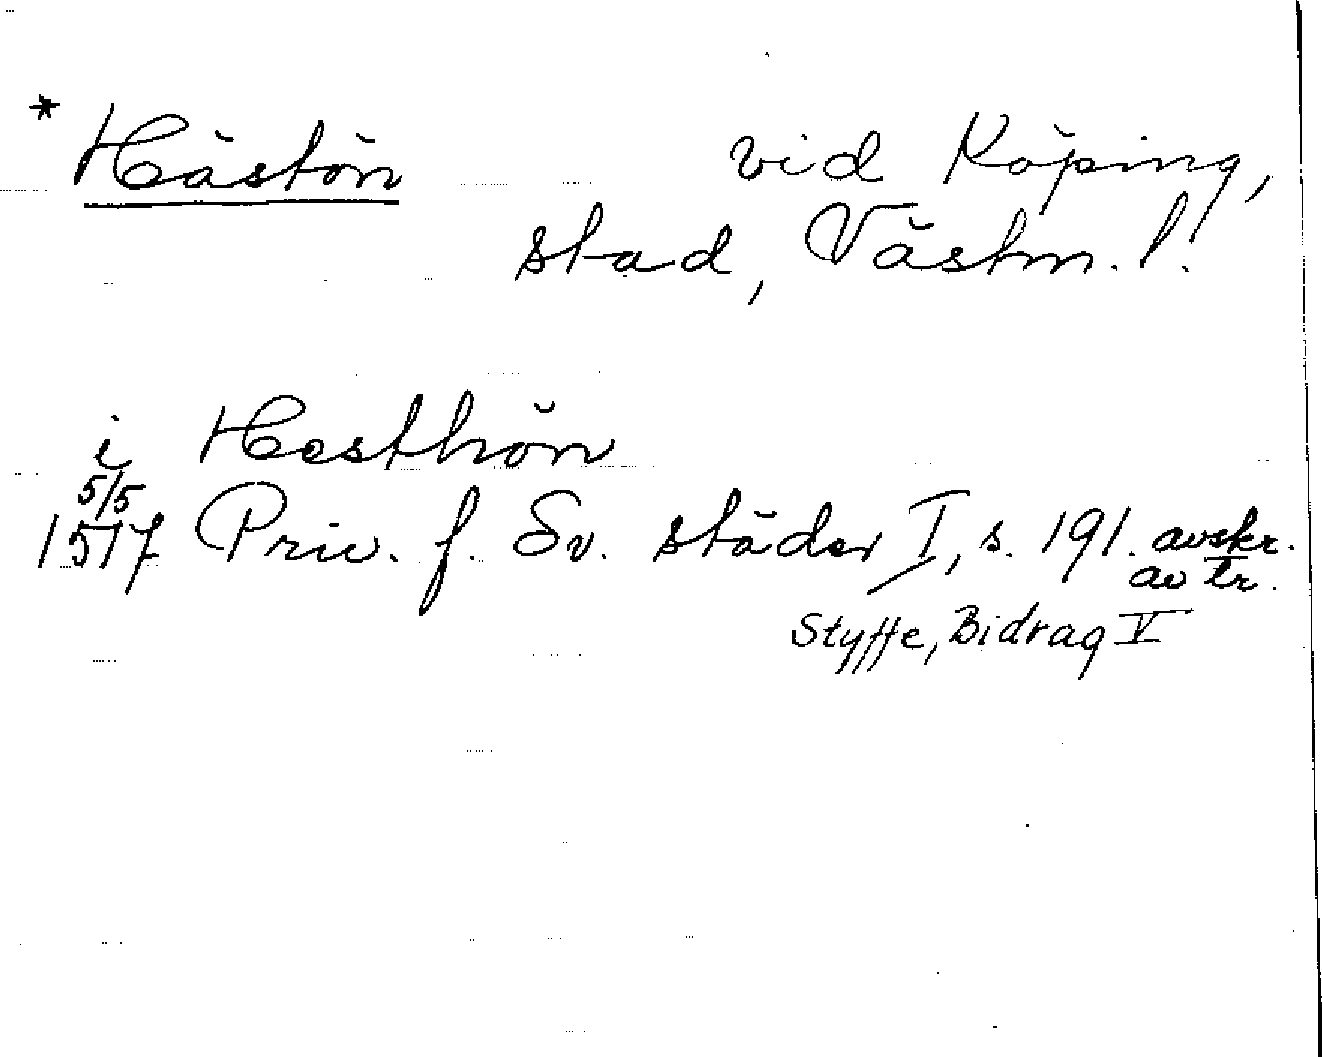 * Hästön vid Köping,
stad, Västm. l.
i Hesthön
5/5
1517 Priv. f. Sv. städer I, s. 191. avskr.
av tr.
Styffe, Bidrag V